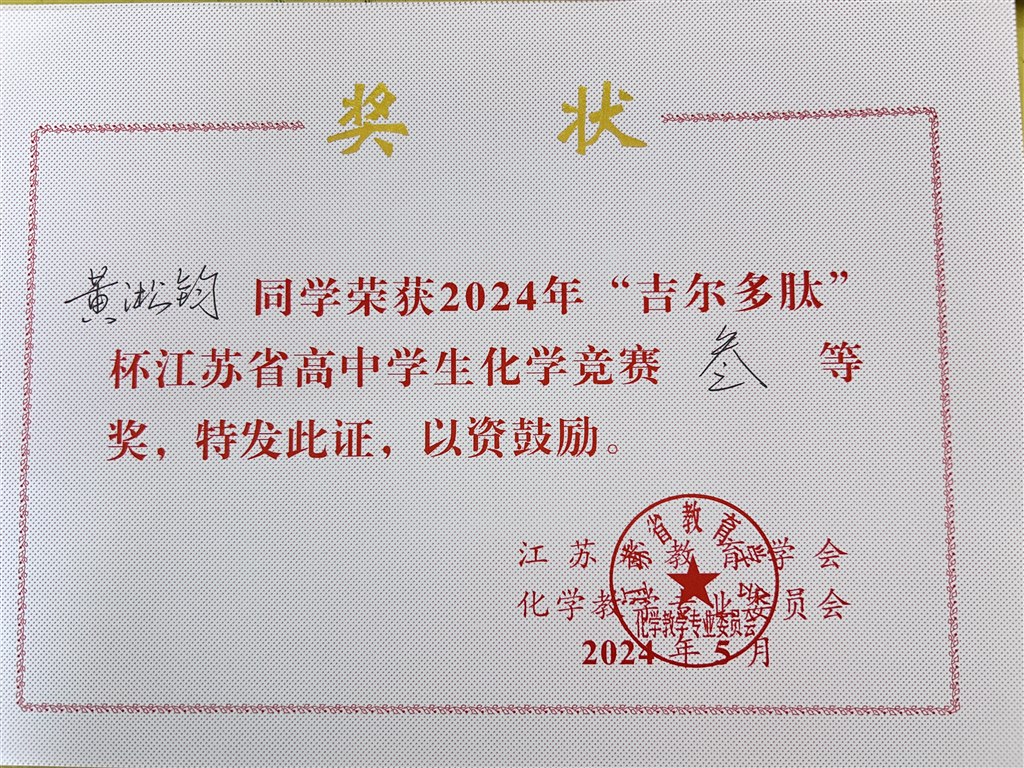 奖 状
黄淞钧 同学荣获2024年“吉尔多肽”
杯江苏省高中学生化学竞赛 叁 等
奖，特发此证，以资鼓励。
江苏省教育学会
化学教学专业委员会
2024 年 5 月
江苏省教育学会
化学教学专业委员会